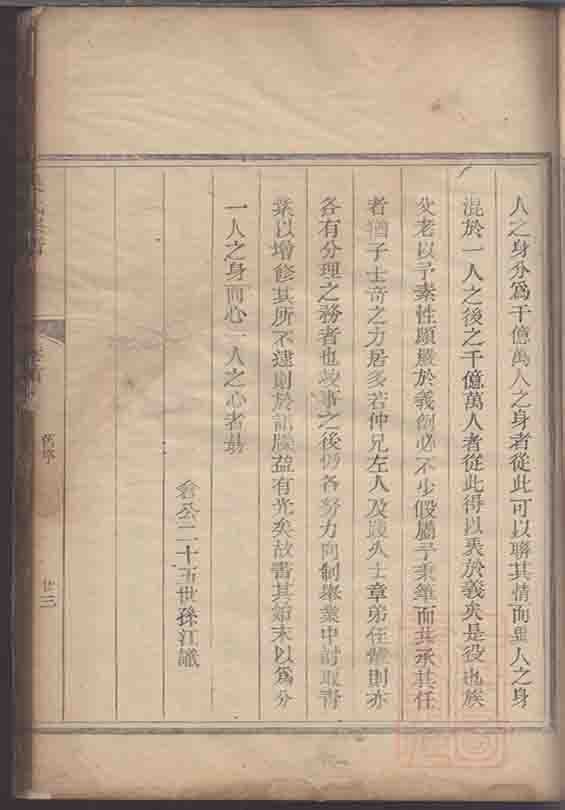 人之身分爲千億萬人之身者從此可以聯其情而並人之身
混於一人之後之千億萬人者從此得以表於義矣是役也族
父老以予素性願嚴於義例必不少假屬予秉筆而共承其任
者猶子士奇之力居多若仲兄左人及踐人士章弟任瞻則亦
各有分理之務者也竣事之後仍各努力向制舉業中討取青
紫以增修其所不逮則於譜牒益有光矣故書其始末以爲分
一人之身而心一人之心者勗
公二十五世孫江識
舊序
廿三